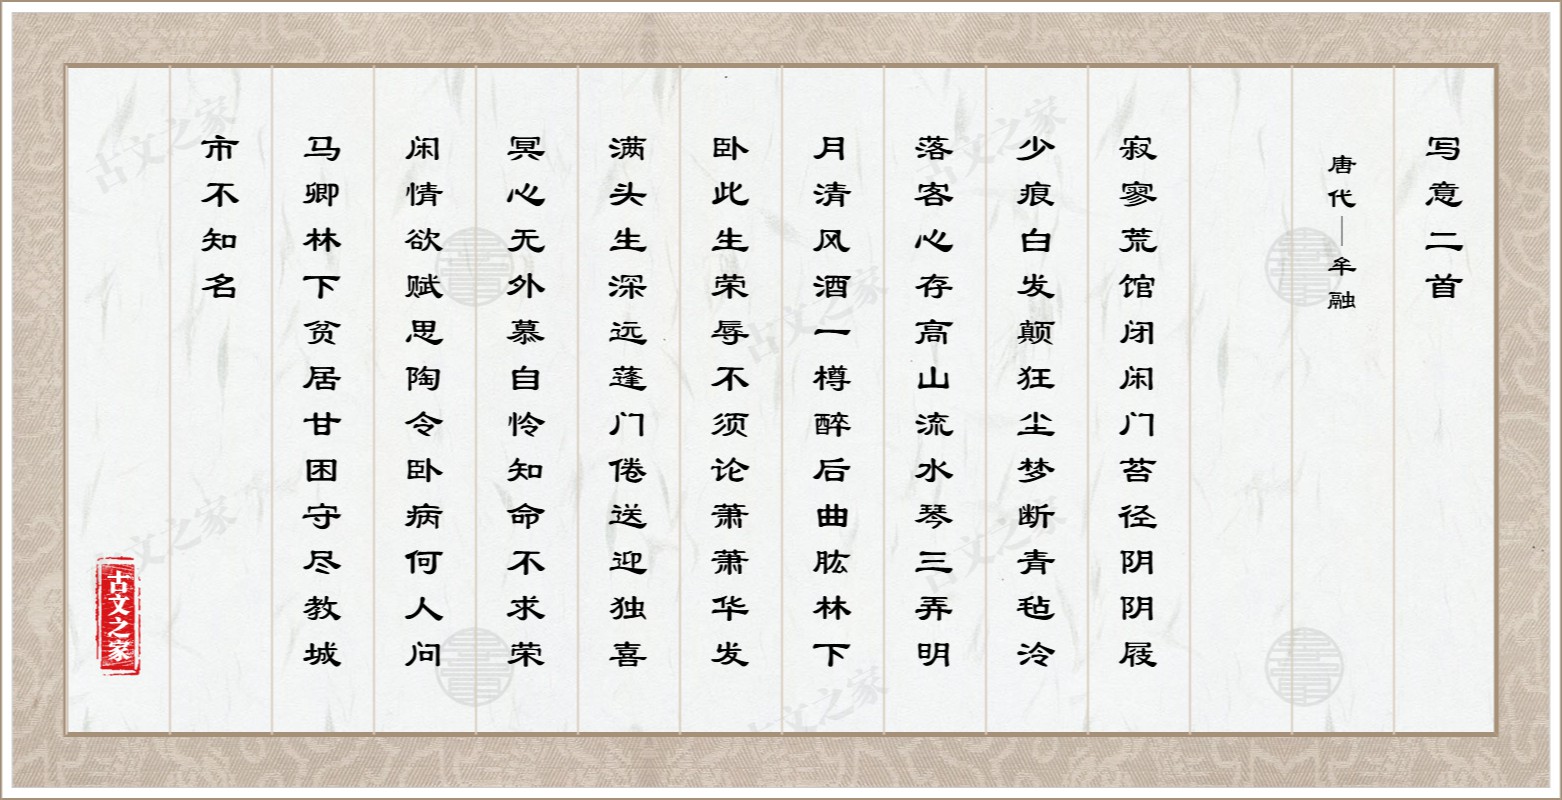 写意二首
唐代—牟融
寂寥荒馆闭闲门苔径阴阴屐
少痕白发颠狂尘梦断青毡泠
落客心存高山流水琴三弄明
月清风酒一樽醉后曲肱林下
卧此生荣辱不须论萧萧华发
满头生深远蓬门倦送迎独喜
冥心无外慕自怜知命不求荣
闲情欲赋思陶令卧病何人问
马卿林下贫居甘困守尽教城
市不知名
古文之家